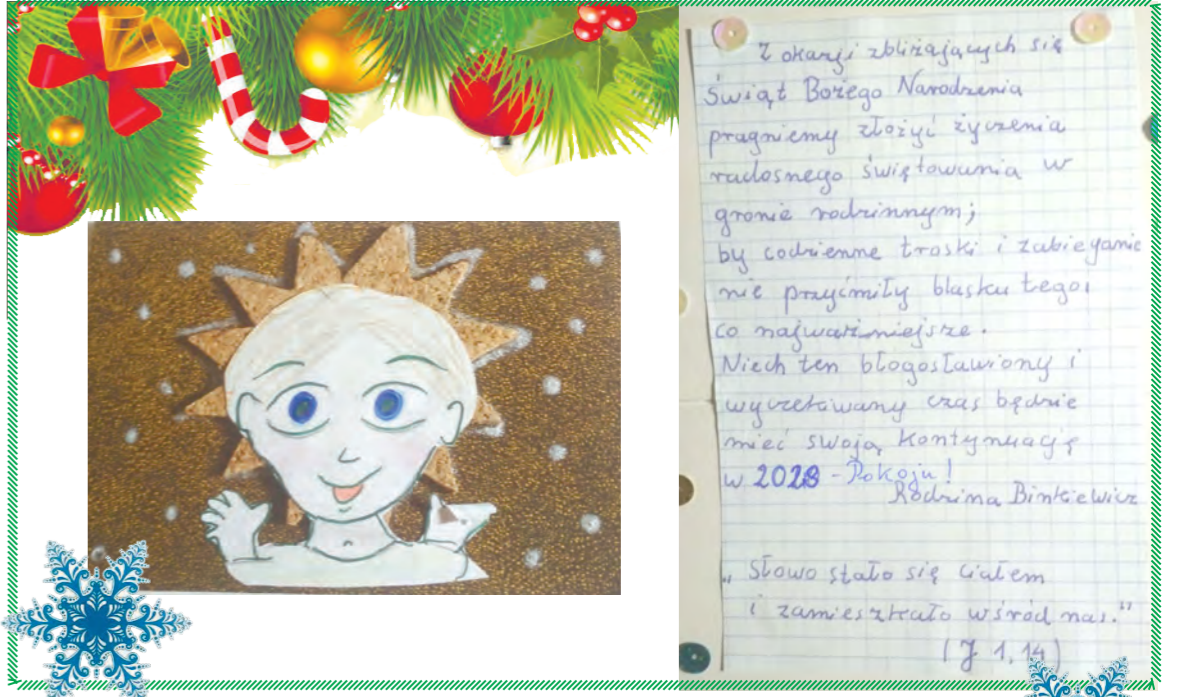 Z okazji zbliżających się
Świąt Bożego Narodzenia
pragniemy złożyć życzenia
radosnego świętowania w
gronie rodzinnym;
by codzienne troski i zabieganie
nie przyćmiły blasku tego,
co najważniejsze.
Niech ten błogosławiony i
wyczekiwany czas będzie
mieć swoją kontynuację
w 2023 - Pokoju!
Rodzina Binkiewicz
„Słowo stało się Ciałem
i zamieszkało wśród nas."
(J 1, 14)